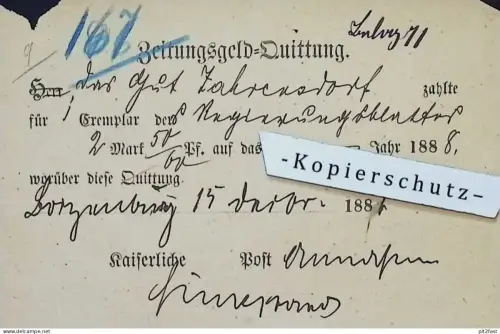 9 167 Beleg 71
Zeitungsgeld-Quittung.
Herr das Gut Zahrensdorf zahlte
für 1 Exemplar des Regierungsblattes
2 Mark 50/60 Pf. auf das Jahr 1888,
worüber diese Quittung.
-Kopierschutz-
Boizenburg 15 Decbr. 188
Kaiserliche Post